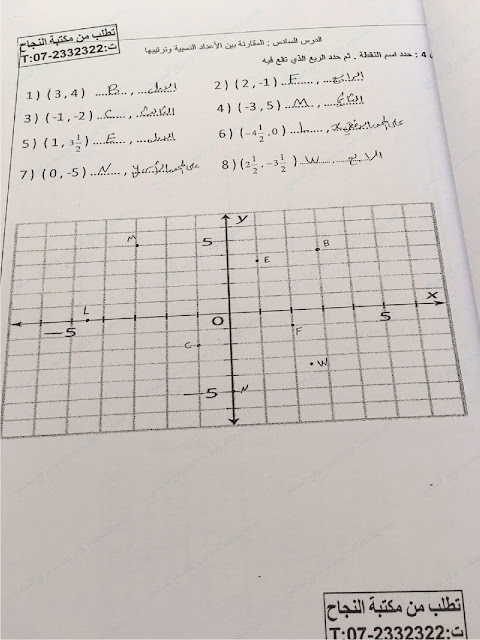 تطلب من مكتبة النجاح
ت:07-2332322:T
الدرس السادس : المقارنة بين الأعداد النسبية وترتيبها
4 : حدد اسم النقطة . ثم حدد الربع الذي تقع فيه
1) (3, 4) B , الأول
2) (2, -1) F , الرابع
3) (-1, -2) C , الثالث
4) (-3, 5) M , الثاني
5) (1, 3 1/2) E , الأول
6) (-4 1/2, 0) L , على المحور الأفقي x
7) (0, -5) N , على المحور الرأسي y
8) (2 1/2, -3 1/2) W , الرابع
y
M
5
B
E
L
x
-5
O
5
F
C
W
-5
N
تطلب من مكتبة النجاح
ت:07-2332322:T